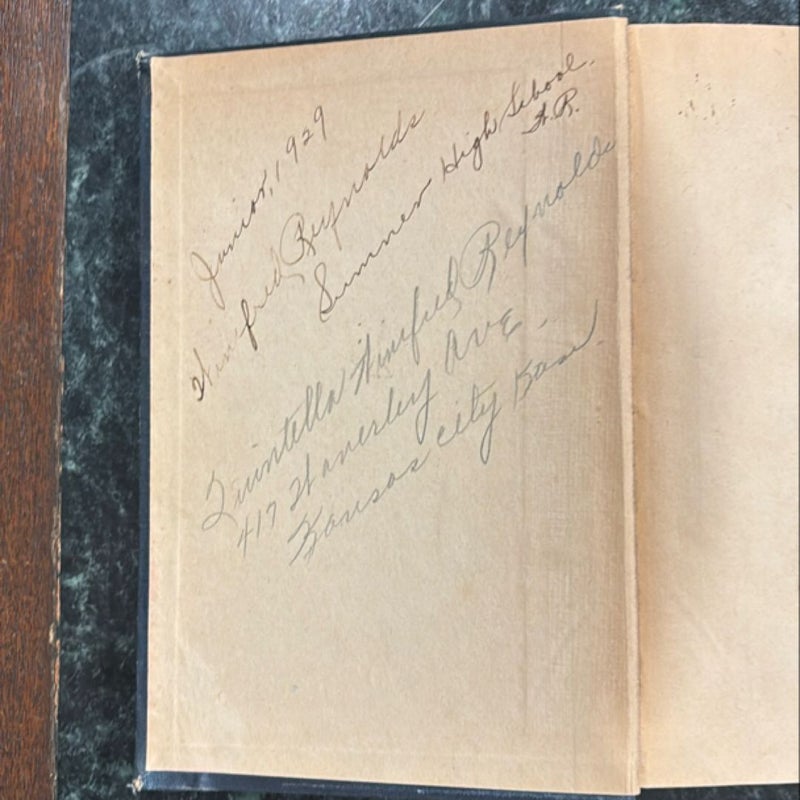 Junior, 1929
Winifred Reynolds
Sumner High School.
H.R.
Quintella Winifred Reynolds
417 Waverley Ave.
Kansas City Kans.